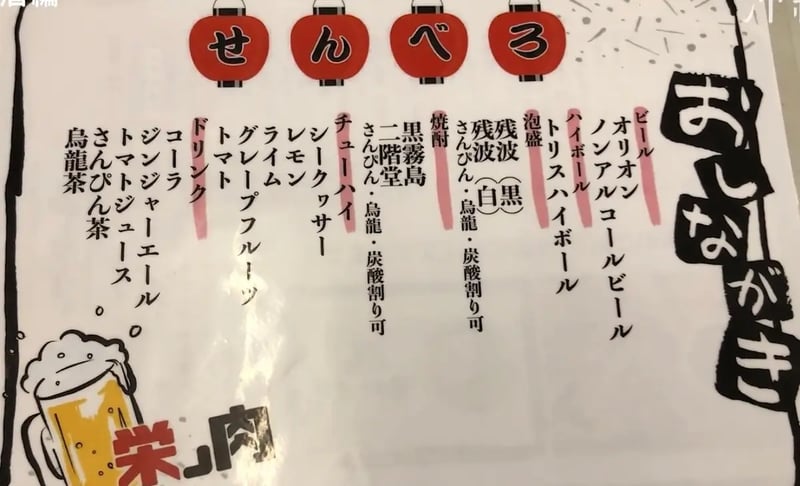 せんべろ
おしながき
ビール
オリオン
ノンアルコールビール
ハイボール
トリスハイボール
泡盛
残波（黒）
残波（白）
さんぴん・烏龍・炭酸割り可
焼酎
黒霧島
二階堂
さんぴん・烏龍・炭酸割り可
チューハイ
シークヮサー
レモン
ライム
グレープフルーツ
トマト
ドリンク
コーラ
ジンジャーエール
トマトジュース
さんぴん茶
烏龍茶
栄ノ肉